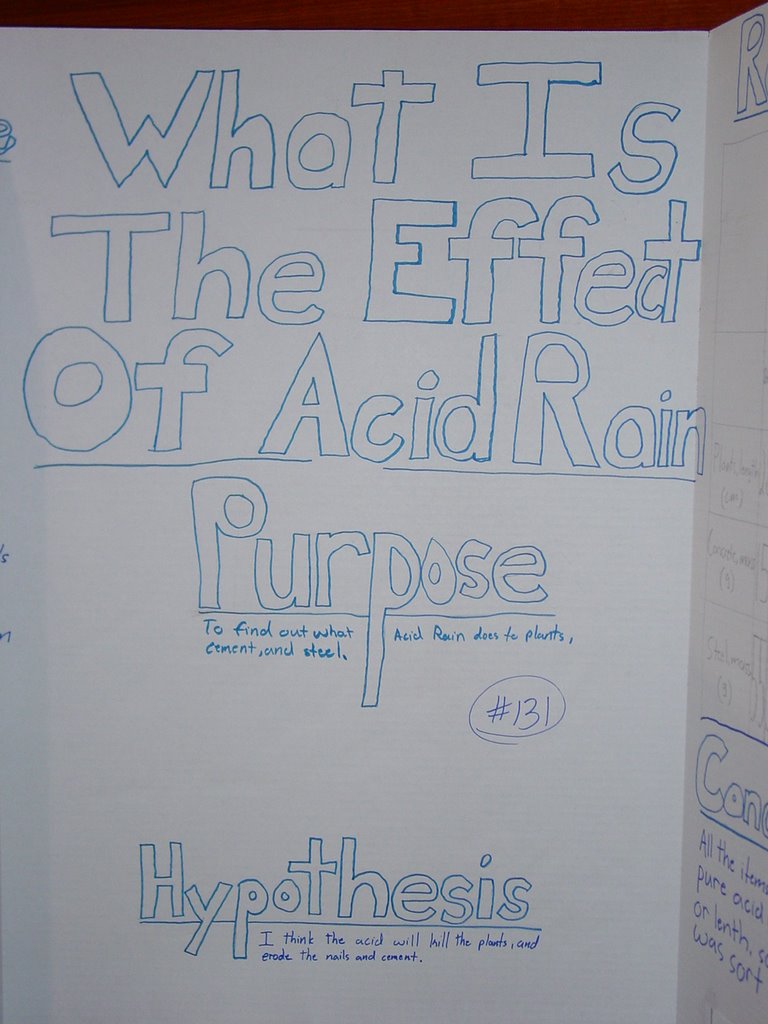 What Is
The Effect
Of Acid Rain
Purpose
To find out what Acid Rain does to plants,
cement, and steel.
#131
Hypothesis
I think the acid will kill the plants, and
erode the nails and cement.
R
Plants, length
(cm)
Concrete, mass
(g)
Steel, mass
(g)
Conc
All the items
pure acid
or lenth, so
was sort